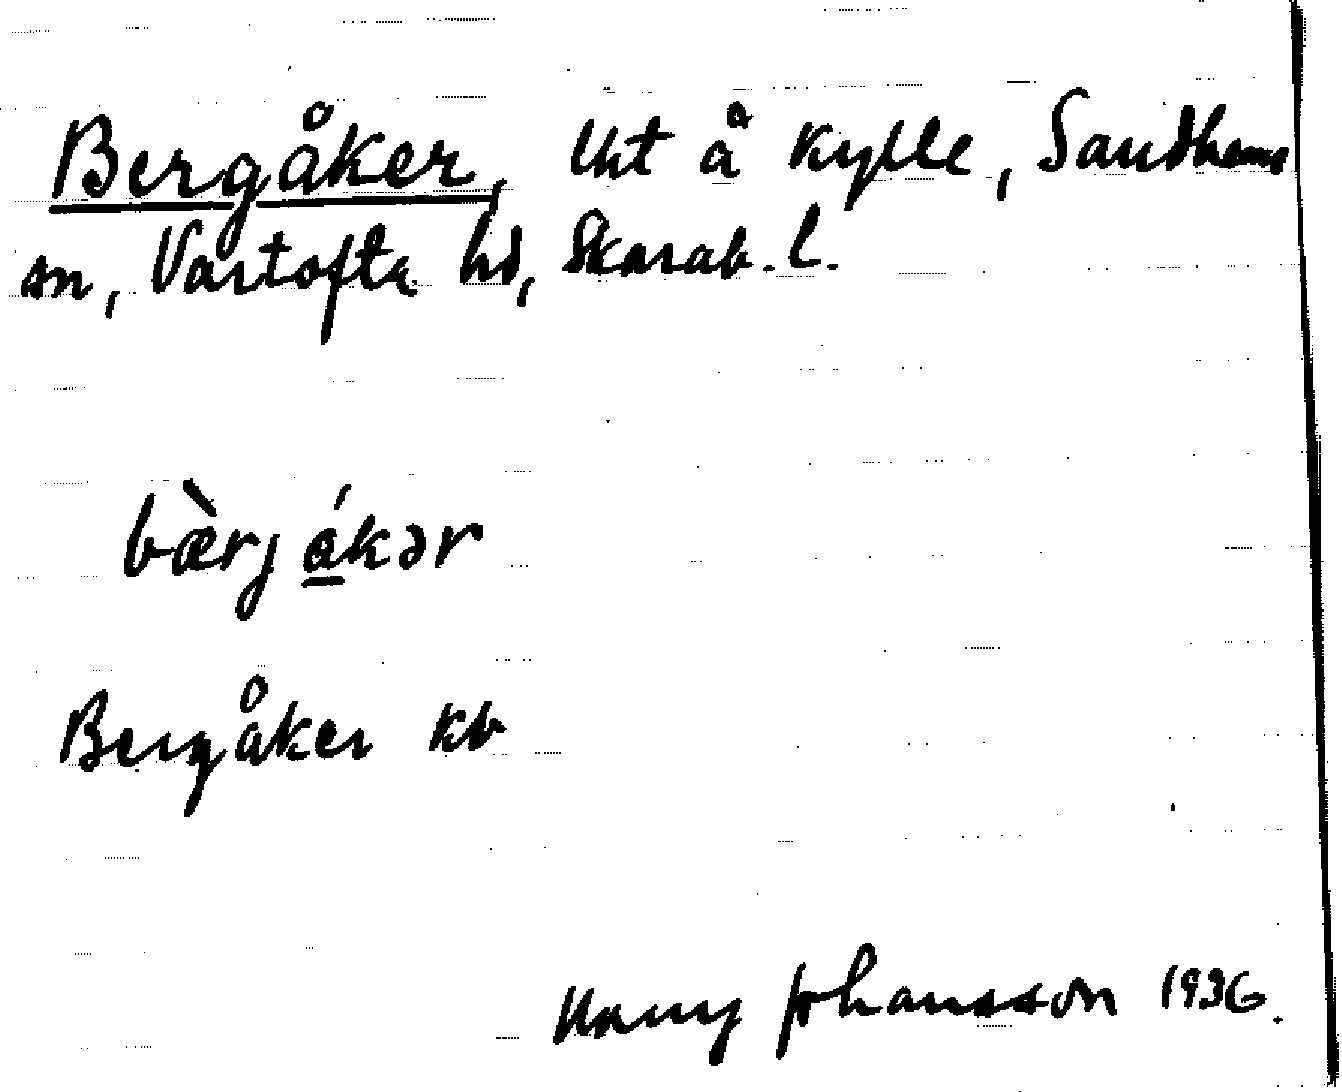 Bergåker, lht å Kylle, Sandhems
sn, Vartofta hd, Skarab. l.
bæ̀rj á̲kər
Bergåker kb
Johansson 1936.